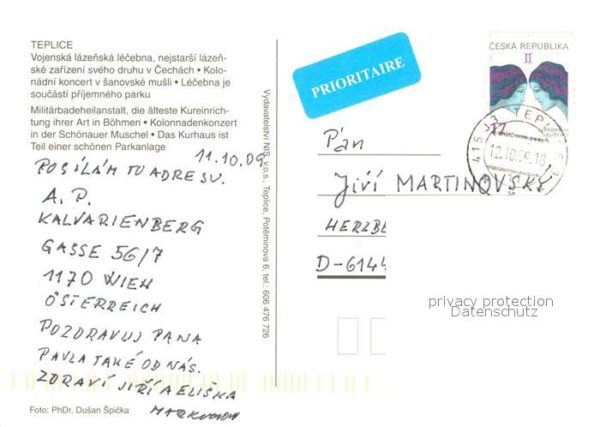 TEPLICE
Vojenská lázeňská léčebna, nejstarší lázeň-
ské zařízení svého druhu v Čechách • Kolo-
nádní koncert v šanovské mušli • Léčebna je
součástí příjemného parku
Militärbadeheilanstalt, die älteste Kureinrich-
tung ihrer Art in Böhmen • Kolonnadenkonzert
in der Schönauer Muschel • Das Kurhaus ist
Teil einer schönen Parkanlage
11.10.09
POSÍLÁM TU ADRESU.
A. P.
KALVARIENBERG
GASSE 56/7
1170 WIEN
ÖSTERREICH
POZDRAVUJ PANA
PAVLA TAKÉ OD NÁS.
ZDRAVÍ JIŘÍ A ELIŠKA
Foto: PhDr. Dušan Špička
Vydavatelství NIS, v.o.s., Teplice, Potěminova 6, tel.: 606 476 726
PRIORITAIRE
ČESKÁ REPUBLIKA
17
415 03 TEPLICE
12.10.09.18
Pán
Jiří MARTINOVSKÝ
HERZBE
D-6144
privacy protection
Datenschutz